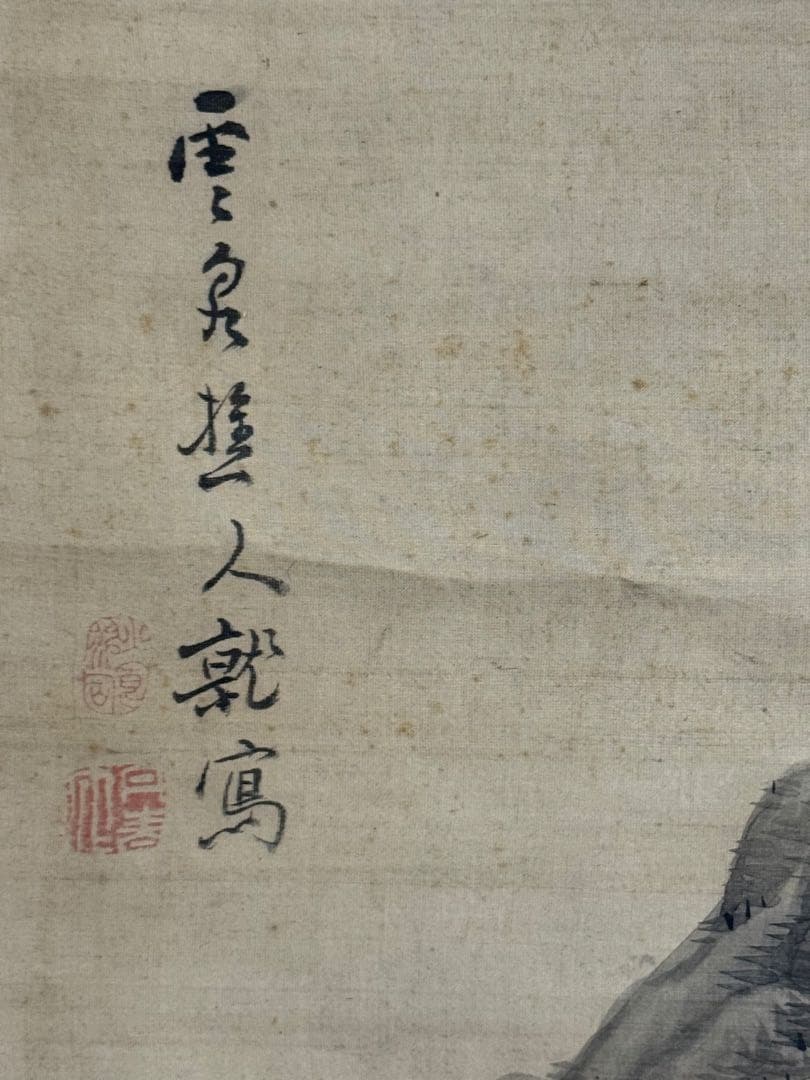 雲泉樵人就寫